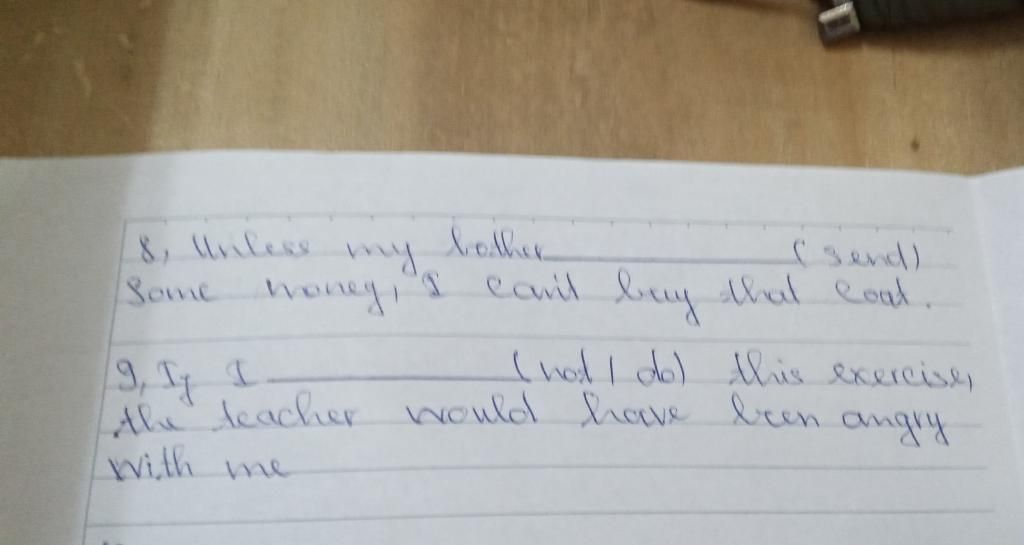 8, Unless my bother __________ (send)
some money, I can't buy that coat.
9, If I __________ (not / do) this exercise,
the teacher would have been angry
with me